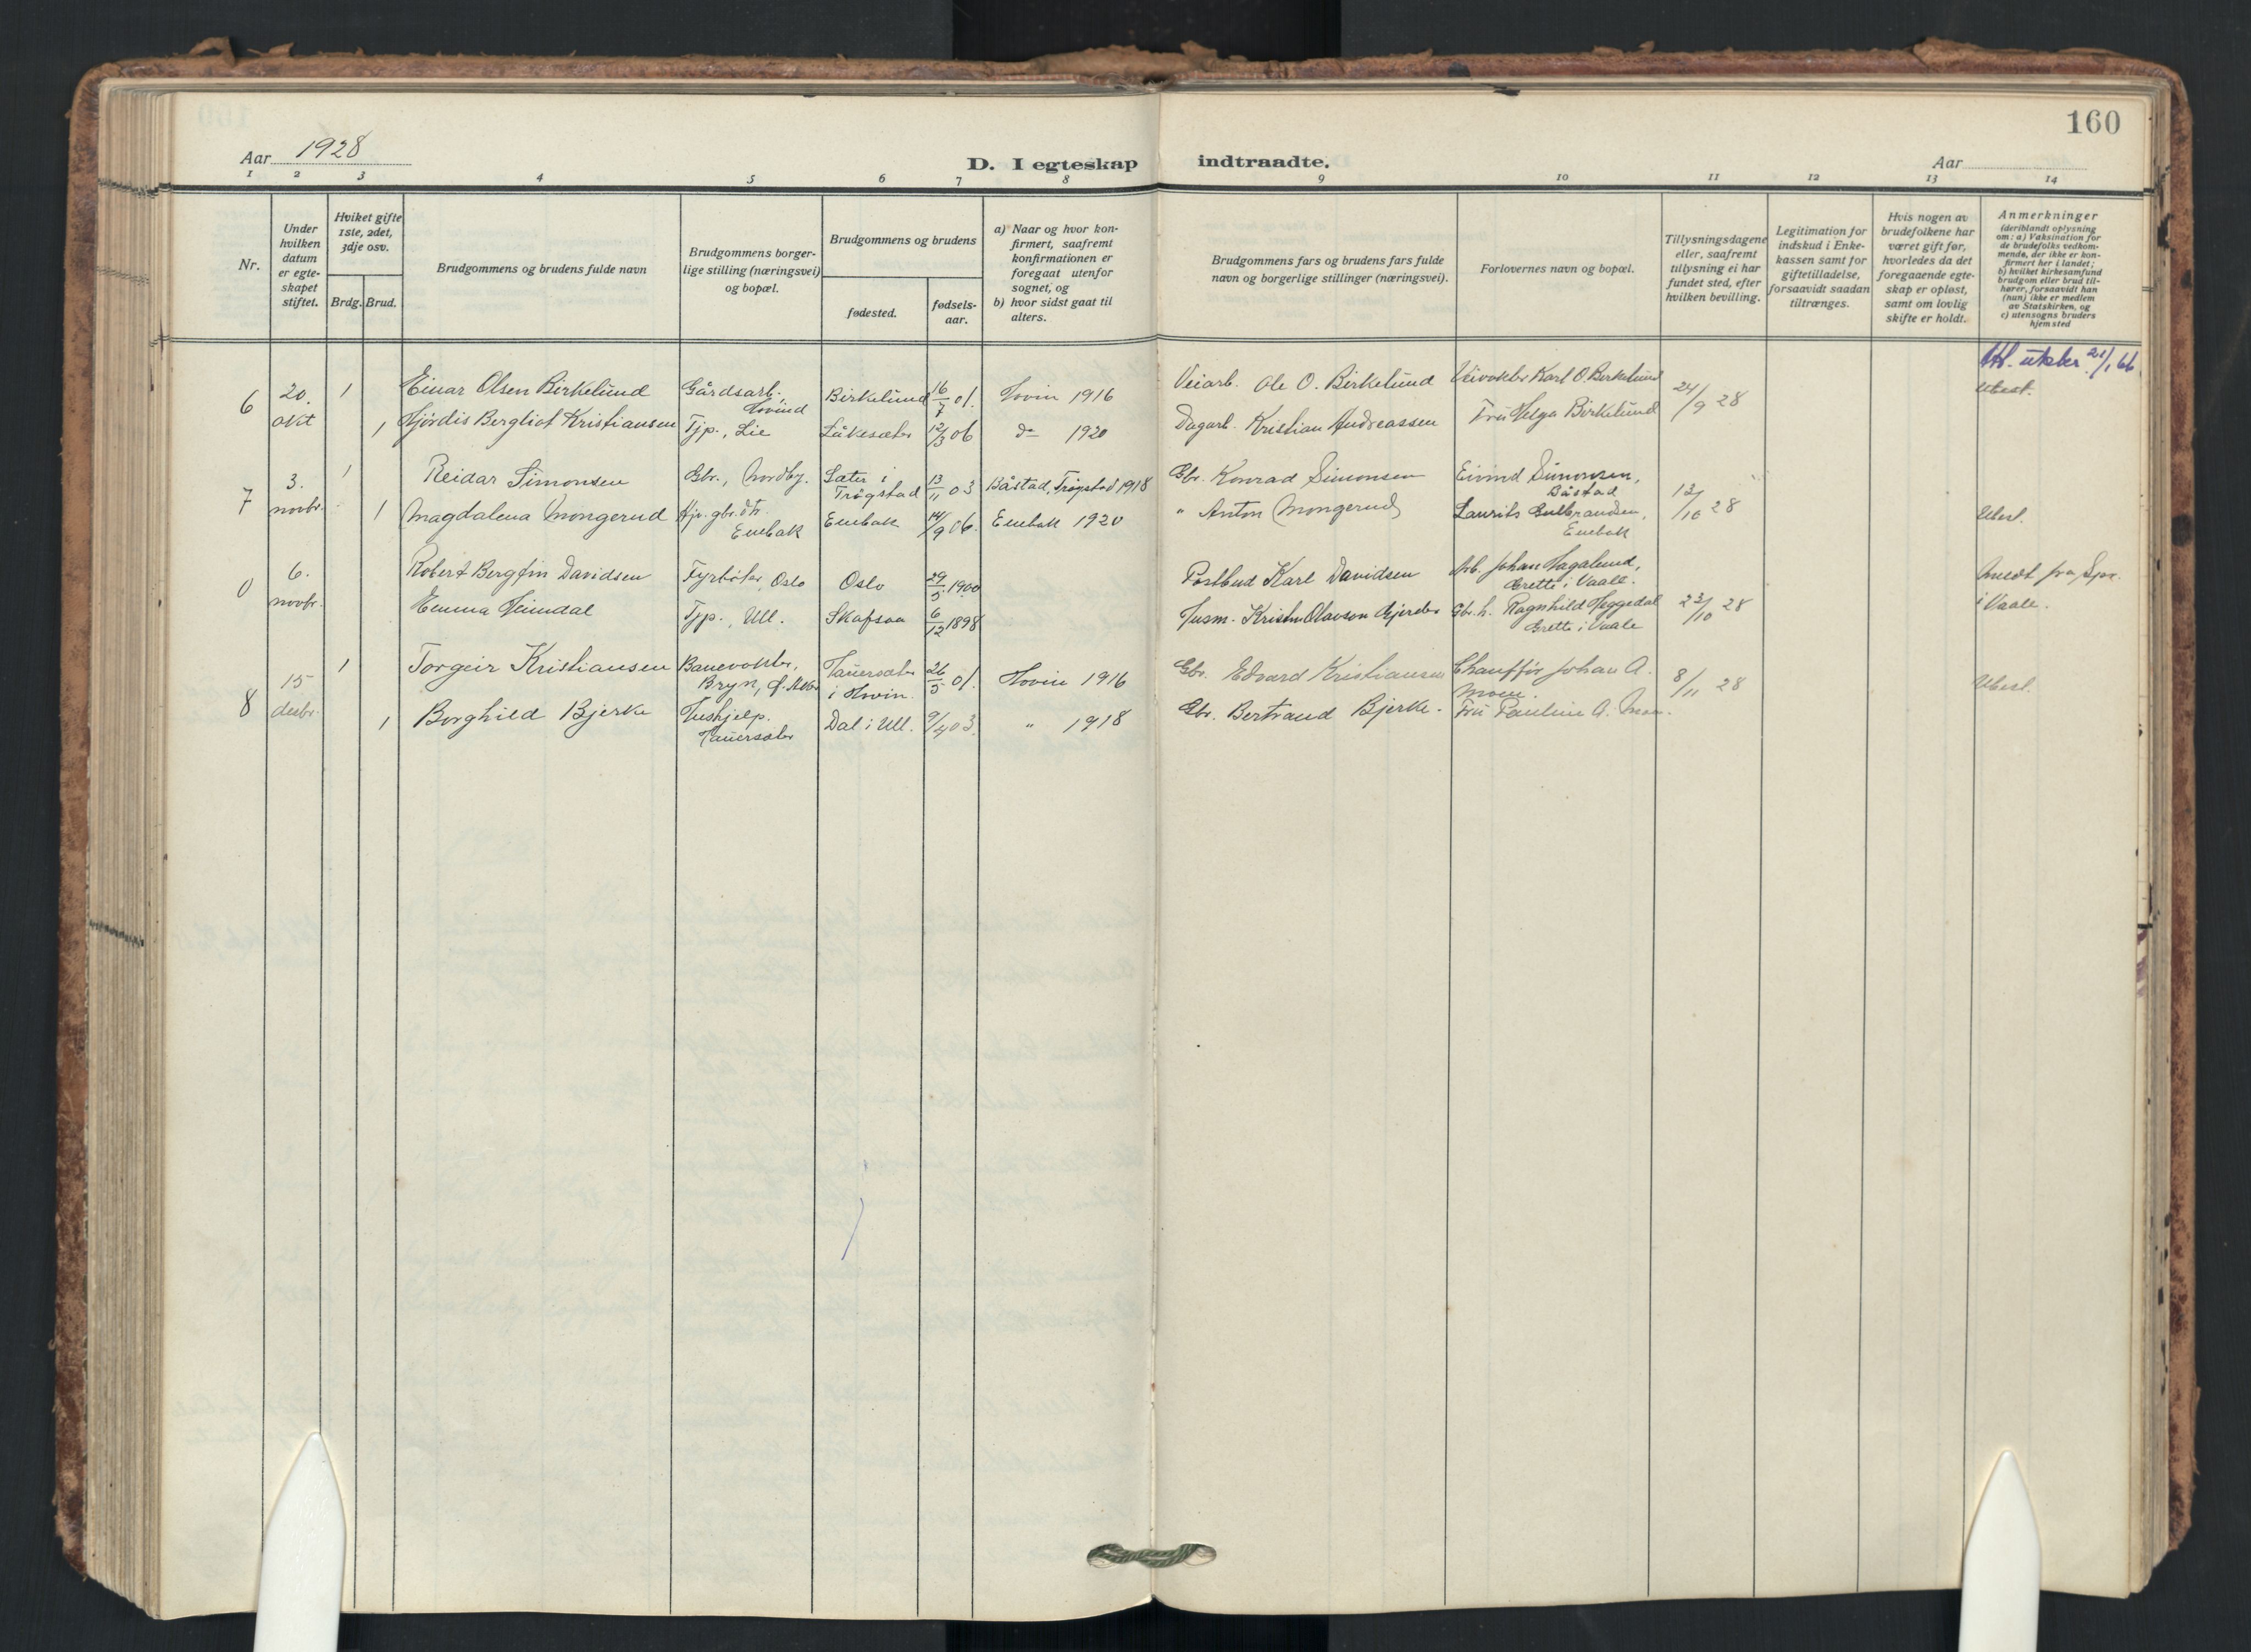 160
Aar 1928
D. I egteskap indtraadte.
Aar
1 2 3 4 5 6 7 8 9 10 11 12 13 14
Nr.
Under
hvilken
datum
er egte-
skapet
stiftet.
Hviket gifte
1ste, 2det,
3dje osv.
Brdg. Brud.
Brudgommens og brudens fulde navn
Brudgommens borger-
lige stilling (næringsvei)
og bopæl.
Brudgommens og brudens
fødested.
fødsels-
aar.
a) Naar og hvor kon-
firmert, saafremt
konfirmationen er
foregaat utenfor
sognet, og
b) hvor sidst gaat til
alters.
Brudgommens fars og brudens fars fulde
navn og borgerlige stillinger (næringsvei).
Forlovernes navn og bopæl.
Tillysningsdagene
eller, saafremt
tillysning ei har
fundet sted, efter
hvilken bevilling.
Legitimation for
indskud i Enke-
kassen samt for
giftetilladelse,
forsaavidt saadan
tiltrænges.
Hvis nogen av
brudefolkene har
været gift før,
hvorledes da det
foregaaende egte-
skap er opløst,
samt om lovlig
skifte er holdt.
Anmerkninger
(deriblandt oplysning
om: a) Vaksination for
de brudefolks vedkom-
mende, der ikke er kon-
firmert her i landet;
b) hvilket kirkesamfund
brudgom eller brud til-
hører, forsaavidt han
(hun) ikke er medlem
av Statskirken, og
c) utensogns bruders
hjemsted
6 20. okt 1 Einar Olsen Birkelund Gårdsarb., Hovind Birkelund 16/7 01. Hovin 1916 Veiarb. Ole O. Birkelund Veivokter Karl O. Birkelund 24/9 28 Ubest.
1 Hjördis Bergliot Kristiansen Tjp., Lie 12/3 06 do 1920 Dagarb. Kristian Andreassen Fru Helga Birkelund
7 3. novbr. 1 Reidar Simonsen Gbr., Nordby. Sæter i Trögstad 13/11 03 Båstad, Trögstad 1918 Gbr. Konrad Simonsen Eivind Simonsen, Båstad 13/10 28 Ubesl.
1 Magdalena Mongerud Hjv. gbr.dtr. Enebak Enebak 14/9 06. Enebak 1920 " Anton Mongerud Laurits Gulbrandsen, Enebak
0 6. novbr. Robert Bergfin Davidsen Fyrböter, Oslo Oslo 29/5 1900 Postbud Karl Davidsen Arb. Johan Hagalund, Grette i Vaale. 23/10 28 i Vaale.
Emma Heimdal Tjp., Ull. Skafsaa 6/12 1898 Husm. Gbr. h. Ragnhild Heggedal Grette i Vaale
8 15 desbr. 1 Torgeir Kristiansen Banevokter, Bryn, Tauersæter i Hovin. 26/5 01. Hovin 1916 Gbr. Edvard Kristiansen Chauffør Johan A. Moen. 8/11 28 Ubesl.
1 Borghild Bjerke Hushjelp. Tauersæter Dal i Ull. 9/4 03. " 1918 Gbr. Bertrand Bjerke. Fru Pauline A. Moen.